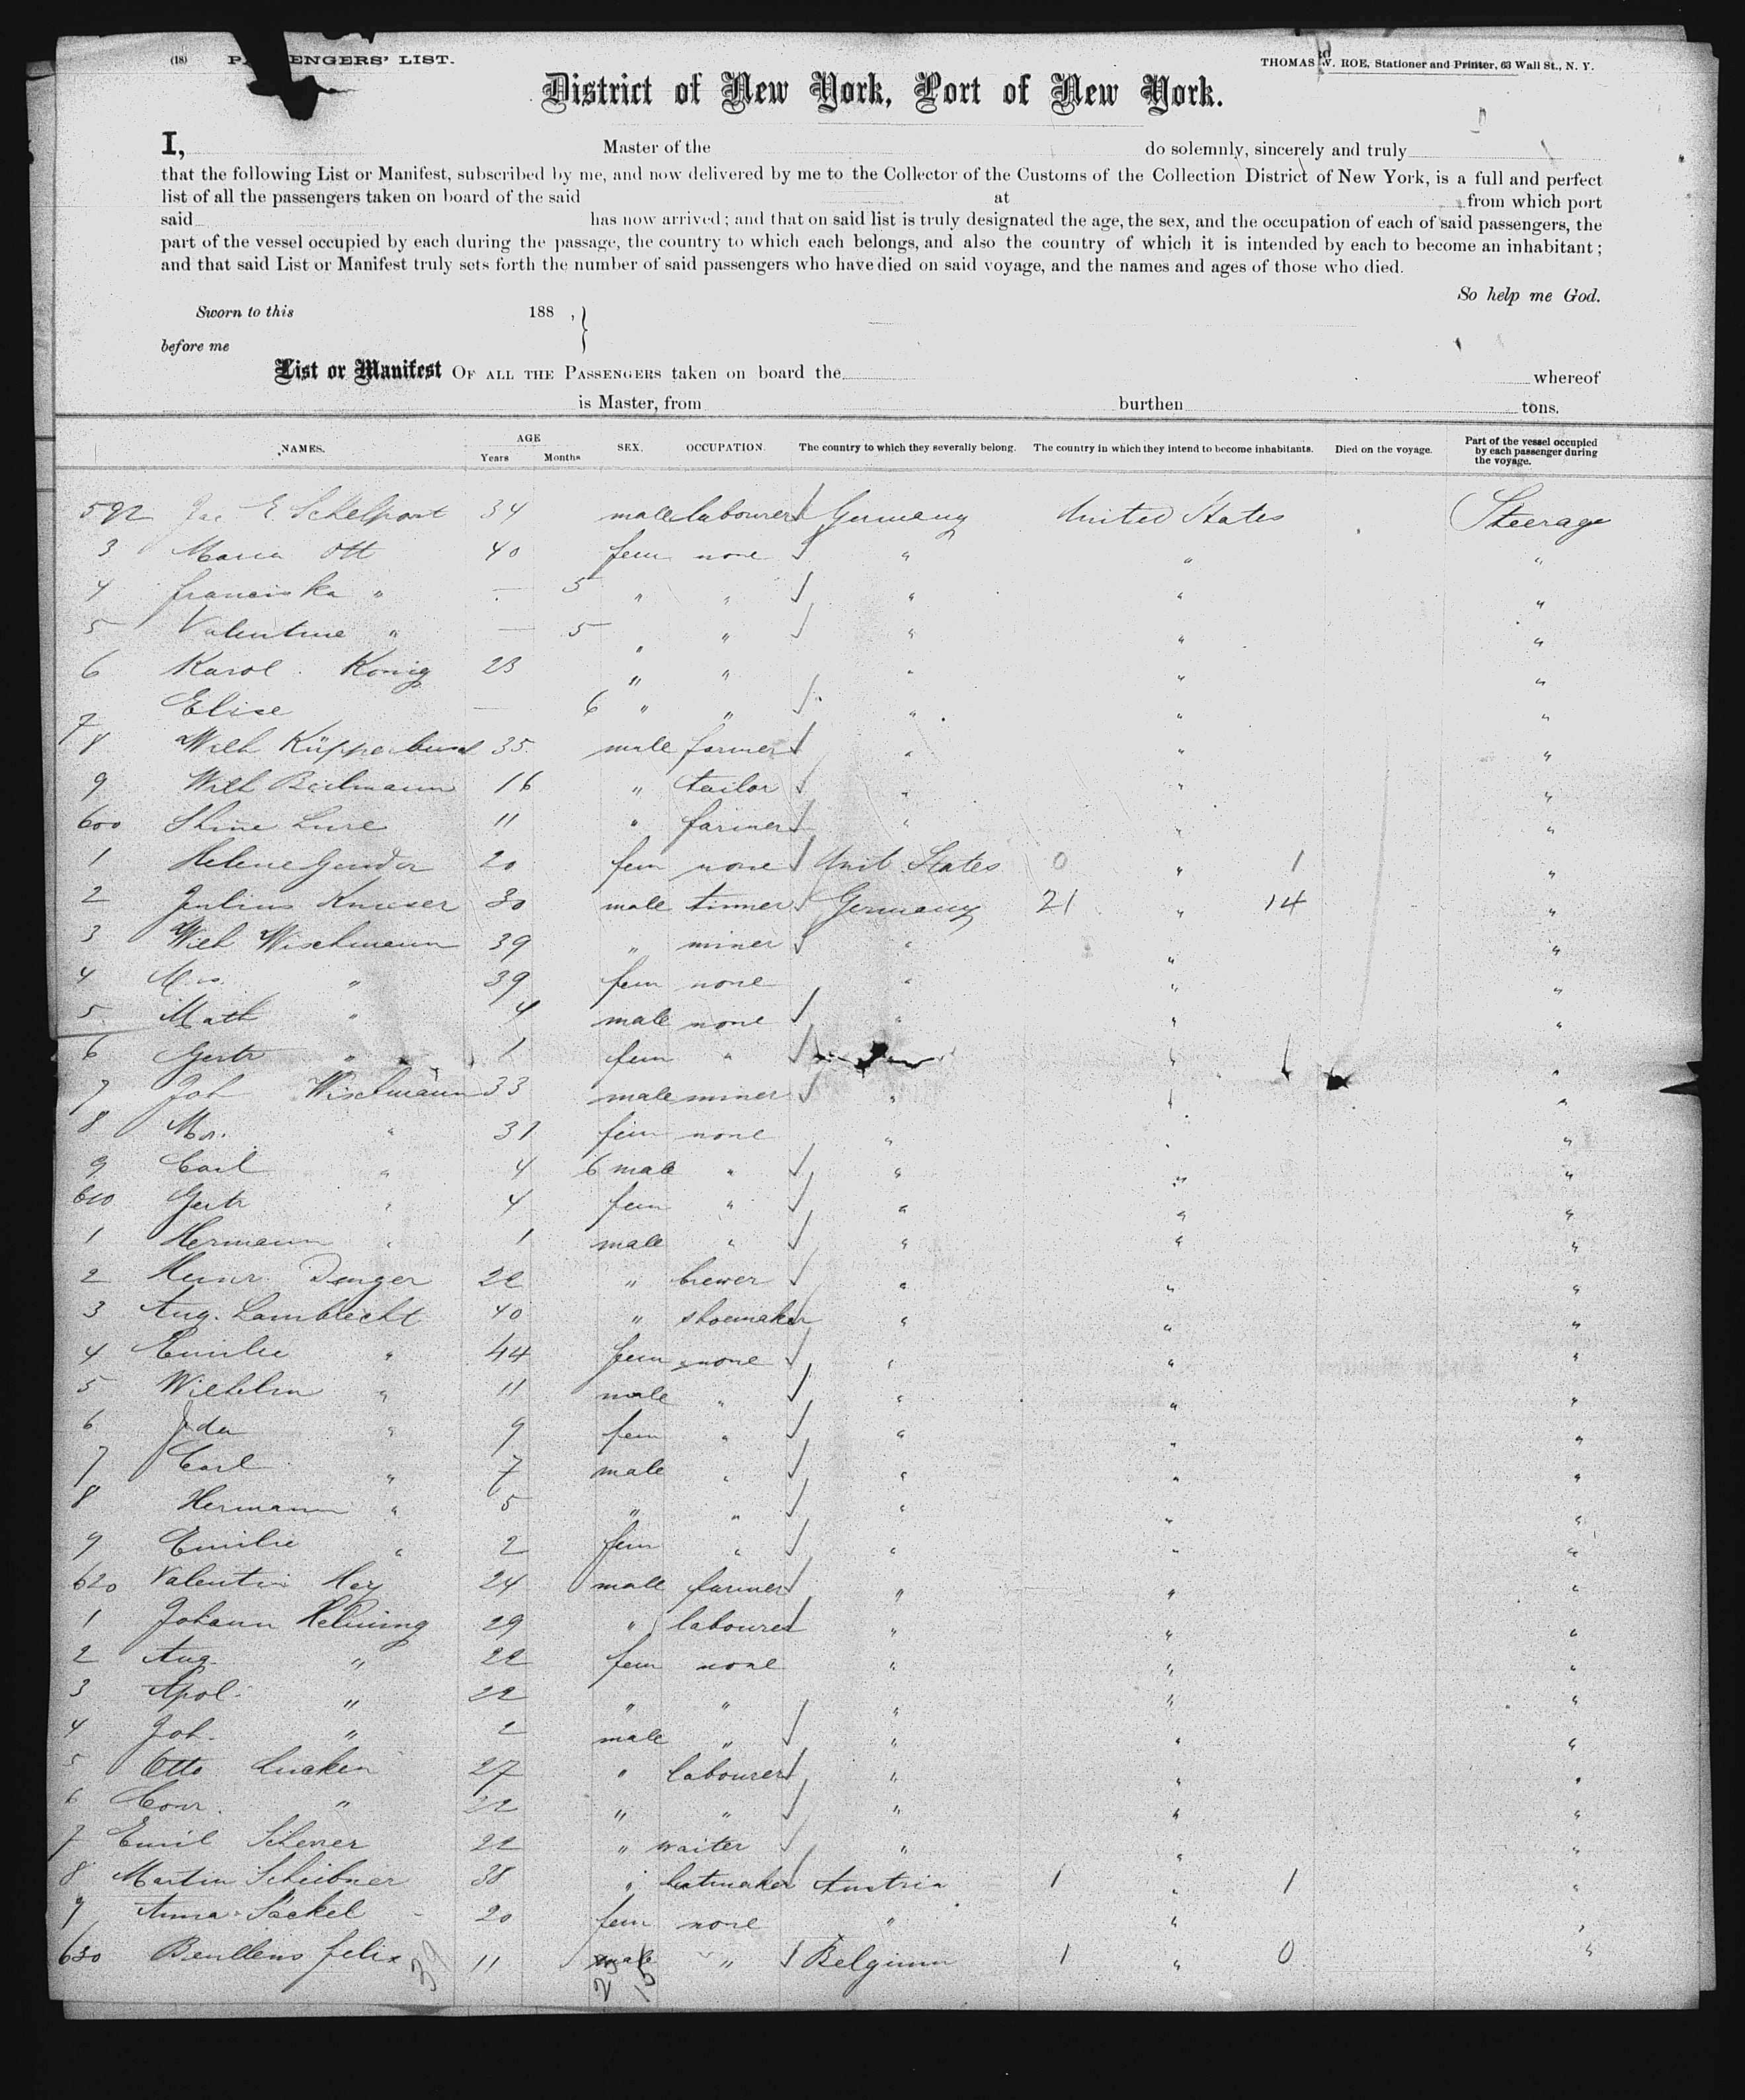 (18) PASSENGERS' LIST.
THOMAS W. ROE, Stationer and Printer, 63 Wall St., N. Y.
District of New York, Port of New York.
I, Master of the do solemnly, sincerely and truly
that the following List or Manifest, subscribed by me, and now delivered by me to the Collector of the Customs of the Collection District of New York, is a full and perfect
list of all the passengers taken on board of the said at from which port
said has now arrived; and that on said list is truly designated the age, the sex, and the occupation of each of said passengers, the
part of the vessel occupied by each during the passage, the country to which each belongs, and also the country of which it is intended by each to become an inhabitant;
and that said List or Manifest truly sets forth the number of said passengers who have died on said voyage, and the names and ages of those who died.
So help me God.
Sworn to this 188 , }
before me
List or Manifest OF ALL THE PASSENGERS taken on board the whereof
is Master, from burthen tons.
NAMES. AGE Years Months SEX. OCCUPATION. The country to which they severally belong. The country in which they intend to become inhabitants. Died on the voyage. Part of the vessel occupied by each passenger during the voyage.
592 E Schelport 34 male labourer Germany United States Steerage
3 Maria Ott 40 fem none " " "
4 franciska " — 5 " " " " "
5 Valentine " — 5 " " " " "
6 Karol. Konig 23 " " " " "
7 Elise — 6 " " " " "
8 Wilh 35 male farmer " " "
9 Wilh 16 " tailor " " "
600 11 " farmer " " "
1 Helene 20 fem none Unit States 0 " 1 "
2 Julius 30 male tinner Germany 21 " 14 "
3 Wilh Wischmann 39 " miner " " "
4 Mrs. " 39 fem none " " "
5 Math " 4 male none " " "
6 Gertr " 1 fem " " "
7 Joh Wischmann 33 male miner " " "
8 Mrs. " 31 fem none " " "
9 Carl " 4 6 male " " " "
610 Gertr " 4 fem " " " "
1 Hermann " 1 male " " " "
2 Heinr. Denger 22 " brewer " " "
3 Aug. Lambrecht 40 " shoemaker " " "
4 Emilie " 44 fem none " " "
5 Wilhelm " 11 male " " " "
6 Ida " 9 fem " " " "
7 Carl " 7 male " " " "
8 Hermann " 5 " " " " "
9 Emilie " 2 fem " " " "
620 Valentin Hey 24 male farmer " " "
1 Johann Helming 29 " labourer " " "
2 Aug. " 22 fem none " " "
3 Apol. " 22 " " " " "
4 Joh. " 2 male " " " "
5 Otto 27 " labourer " " "
6 " 22 " " " " "
7 Emil 22 " waiter " " "
8 Martin Scheibner 38 " hatmaker Austria 1 " 1 "
9 Anna Sackel 20 fem none " " "
630 Beullens felix 11 male " Belgium 1 " 0 "
39